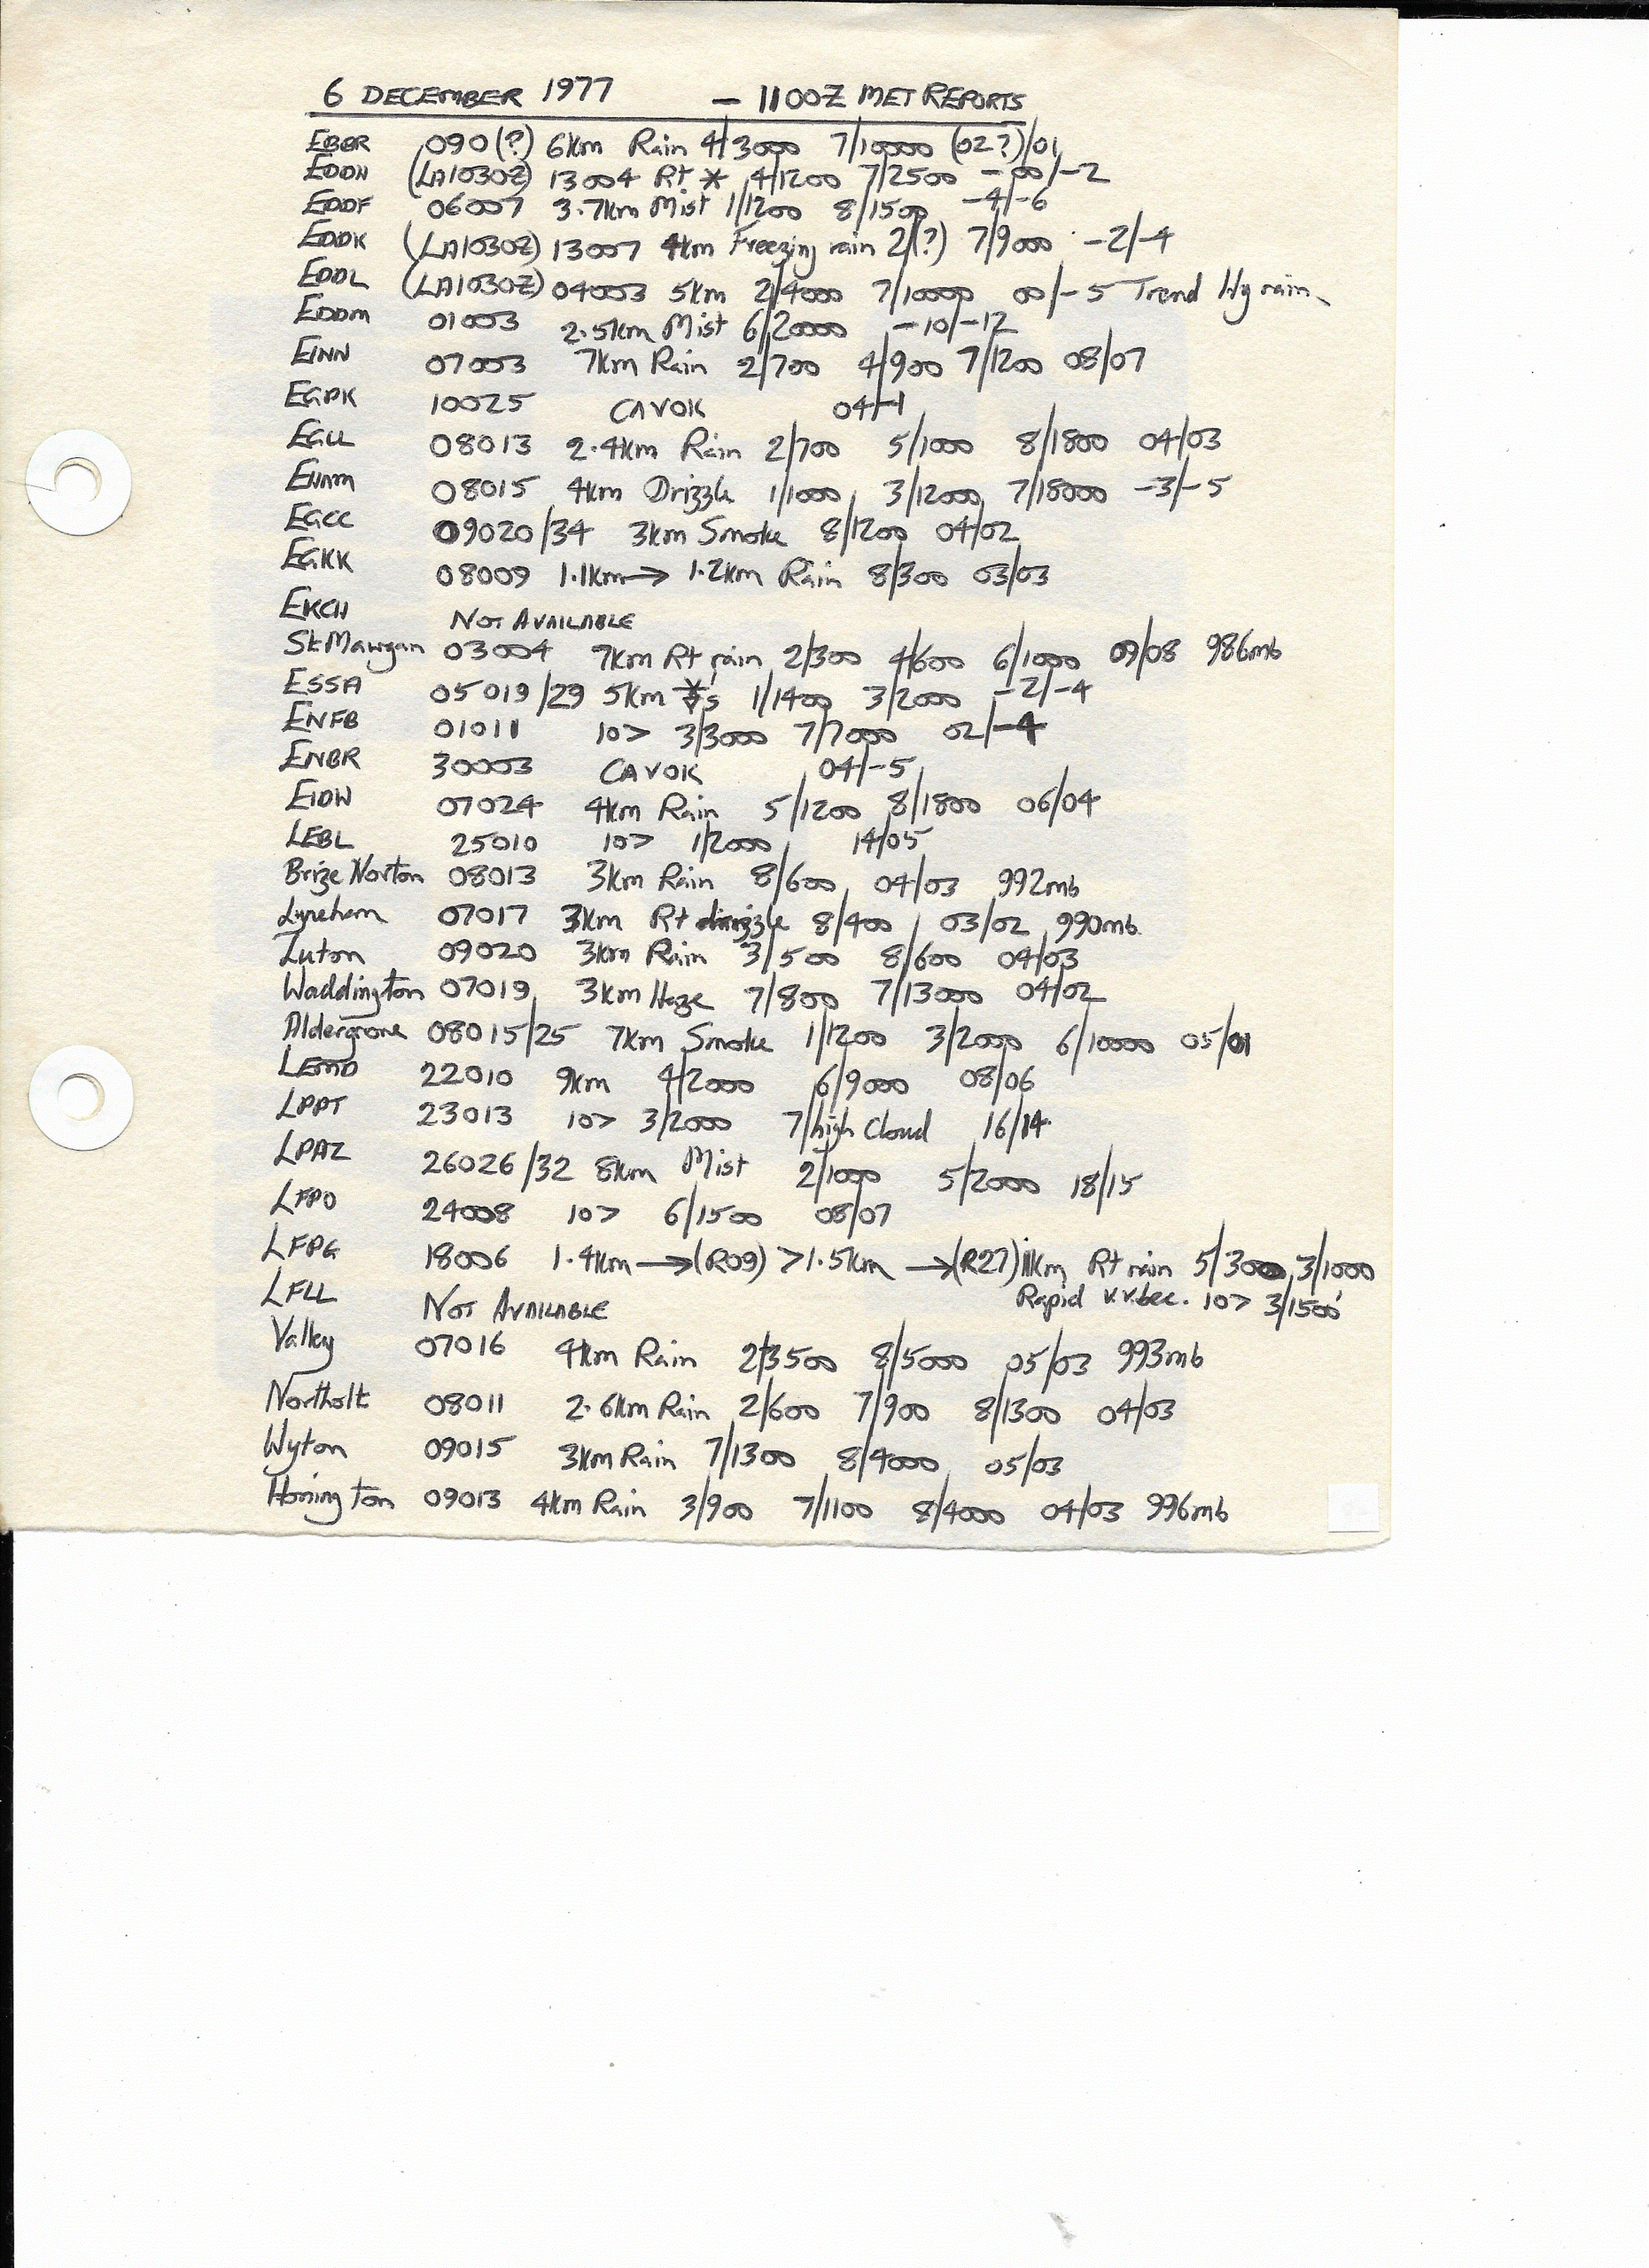 6 DECEMBER 1977 - 1100Z MET REPORTS
EBBR 090(?) 6km Rain 4/3000 7/10000 (02?)/01
EDDN (LA1030Z) 13004 Rt * 4/1200 7/2500 -00/-2
EDDF 06007 3.7km Mist 1/1200 8/1500 -4/-6
EDDK (LA1030Z) 13007 4km Freezing rain 2/(?) 7/9000 -2/-4
EDDL (LA1030Z) 04003 5km 2/4000 7/10000 00/-5 Trend Hy rain
EDDM 01003 2.5km Mist 6/20000 -10/-12
EINN 07003 7km Rain 2/700 4/900 7/1200 08/07
EGPK 10025 CAVOK 04/-1
EGLL 08013 2.4km Rain 2/700 5/1000 8/1800 04/03
EHAM 08015 4km Drizzle 1/1000 3/12000 7/18000 -3/-5
EGCC 09020/34 3km Smoke 8/1200 04/02
EGKK 08009 1.1km→ 1.2km Rain 8/300 03/03
EKCH NOT AVAILABLE
St.Mawgan 03004 7km Rt rain 2/300 4/600 6/1000 09/08 986mb
ESSA 05019/29 5km 1/1400 3/2000 -2/-4
ENFB 01011 10> 3/3000 7/7000 02/-4
ENBR 30003 CAVOK 04/-5
EIDW 07024 4km Rain 5/1200 8/1800 06/04
LEBL 25010 10> 1/2000 14/05
Brize Norton 08013 3km Rain 8/600 04/03 992mb
Lyneham 07017 3km Rt drizzle 8/400 03/02 990mb.
Luton 09020 3km Rain 3/500 8/600 04/03
Waddington 07019 3km Haze 7/800 7/13000 04/02
Aldergrove 08015/25 7km Smoke 1/1200 3/2000 6/10000 05/01
LEMD 22010 9km 4/2000 6/9000 08/06
LPPT 23013 10> 3/2000 7/high Cloud 16/14
LPAZ 26026/32 8km Mist 2/1000 5/2000 18/15
LFPO 24008 10> 6/1500 08/07
LFPG 18006 1.4km→(R09) >1.5km →(R27) 11km Rt rain 5/3000 3/1000
Rapid v.v.bec. 10> 3/1500
LFLL NOT AVAILABLE
Valley 07016 4km Rain 2/3500 8/5000 05/03 993mb
Northolt 08011 2.6km Rain 2/600 7/900 8/1300 04/03
Wyton 09015 3km Rain 7/1300 8/4000 05/03
Honington 09013 4km Rain 3/900 7/1100 8/4000 04/03 996mb